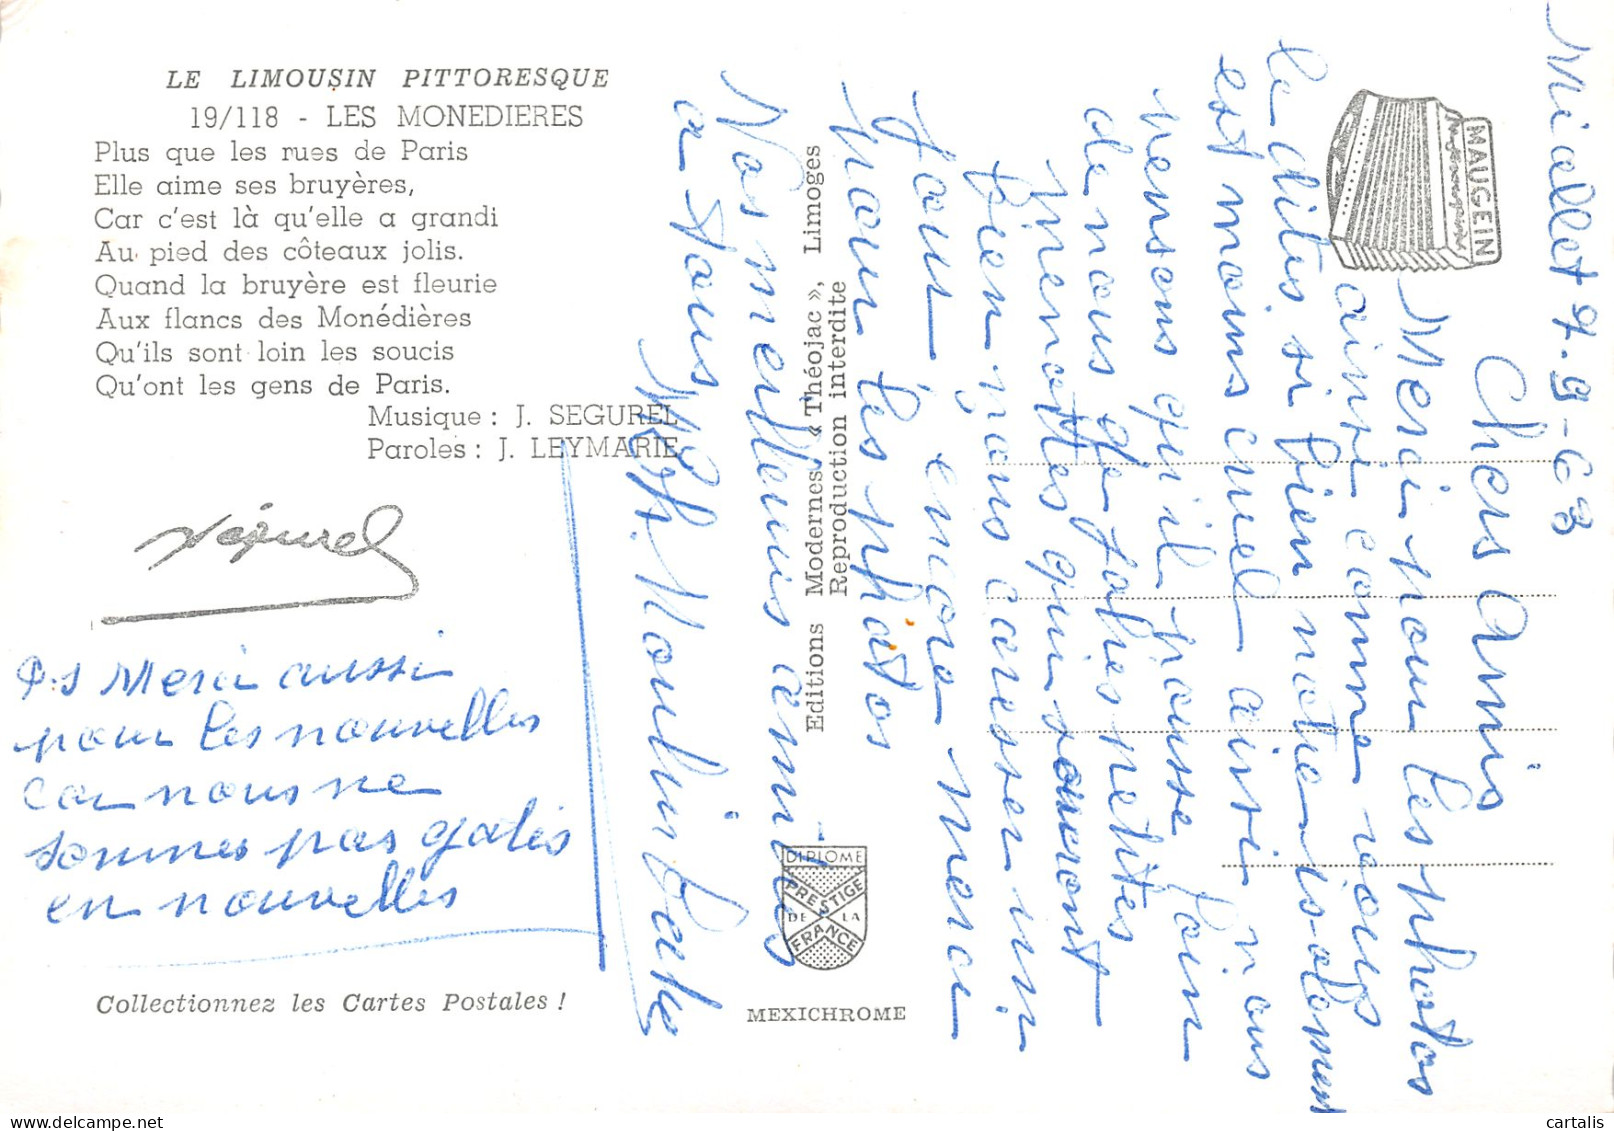 LE LIMOUSIN PITTORESQUE
19/118 - LES MONEDIERES
Plus que les rues de Paris
Elle aime ses bruyères,
Car c'est là qu'elle a grandi
Au pied des côteaux jolis.
Quand la bruyère est fleurie
Aux flancs des Monédières
Qu'ils sont loin les soucis
Qu'ont les gens de Paris.
Musique : J. SEGUREL
Paroles : J. LEYMARIE
Ségurel
P.S Merci aussi
pour les nouvelles
car nous ne
sommes pas gatés
en nouvelles
Collectionnez les Cartes Postales !
Editions Modernes « Théojac », Limoges
Reproduction interdite
DIPLOME
PRESTIGE
DE LA
FRANCE
MEXICHROME
MAUGEIN
Miallet 7.9-63
Chers Amis
Merci pour les photos
ainsi comme vous
le dites si bien notre isolement
est moins cruel ainsi nous
pensons qu'il pousse loin
de nous de jolies petites
menottes qui sauront
bien vous caresser un
jour encore merci
pour les photos
Nos meilleurs amitiés
a tous